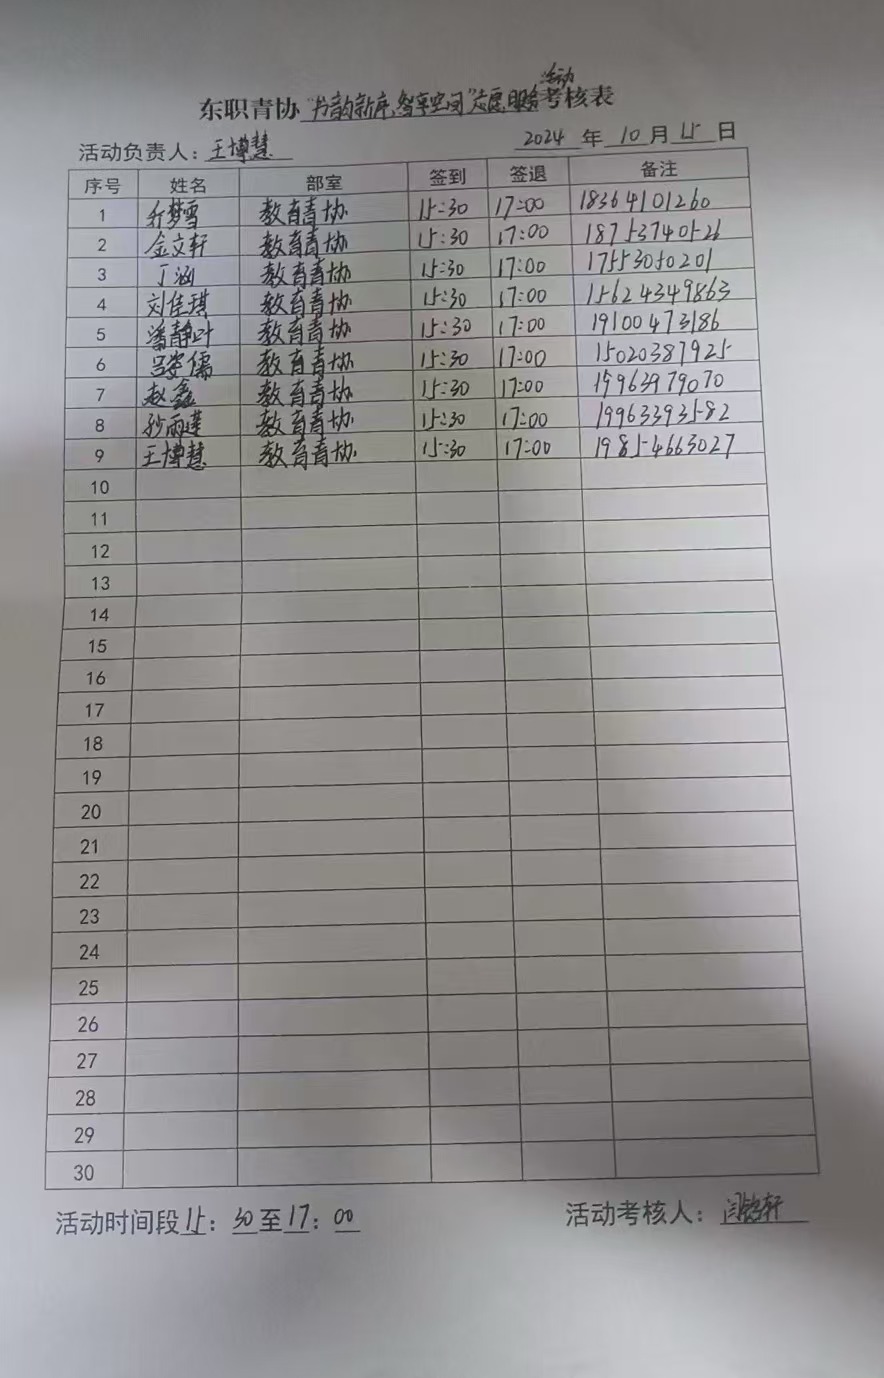 活动
东职青协“书韵新序,智享空间”志愿服务考核表
活动负责人：王博慧 2024 年 10 月 15 日
序号 姓名 部室 签到 签退 备注
1 乔梦雪 教育青协 15:30 17:00 18364101260
2 金文轩 教育青协 15:30 17:00 18753740526
3 丁涵 教育青协 15:30 17:00 17553050201
4 刘佳琪 教育青协 15:30 17:00 15624349863
5 潘静叶 教育青协 15:30 17:00 19100473186
6 吕安儒 教育青协 15:30 17:00 15020387925
7 赵鑫 教育青协 15:30 17:00 15963979070
8 孙雨莲 教育青协 15:30 17:00 19963393582
9 王博慧 教育青协 15:30 17:00 19854663027
10
11
12
13
14
15
16
17
18
19
20
21
22
23
24
25
26
27
28
29
30
活动时间段15：30至17：00 活动考核人：闫铭轩